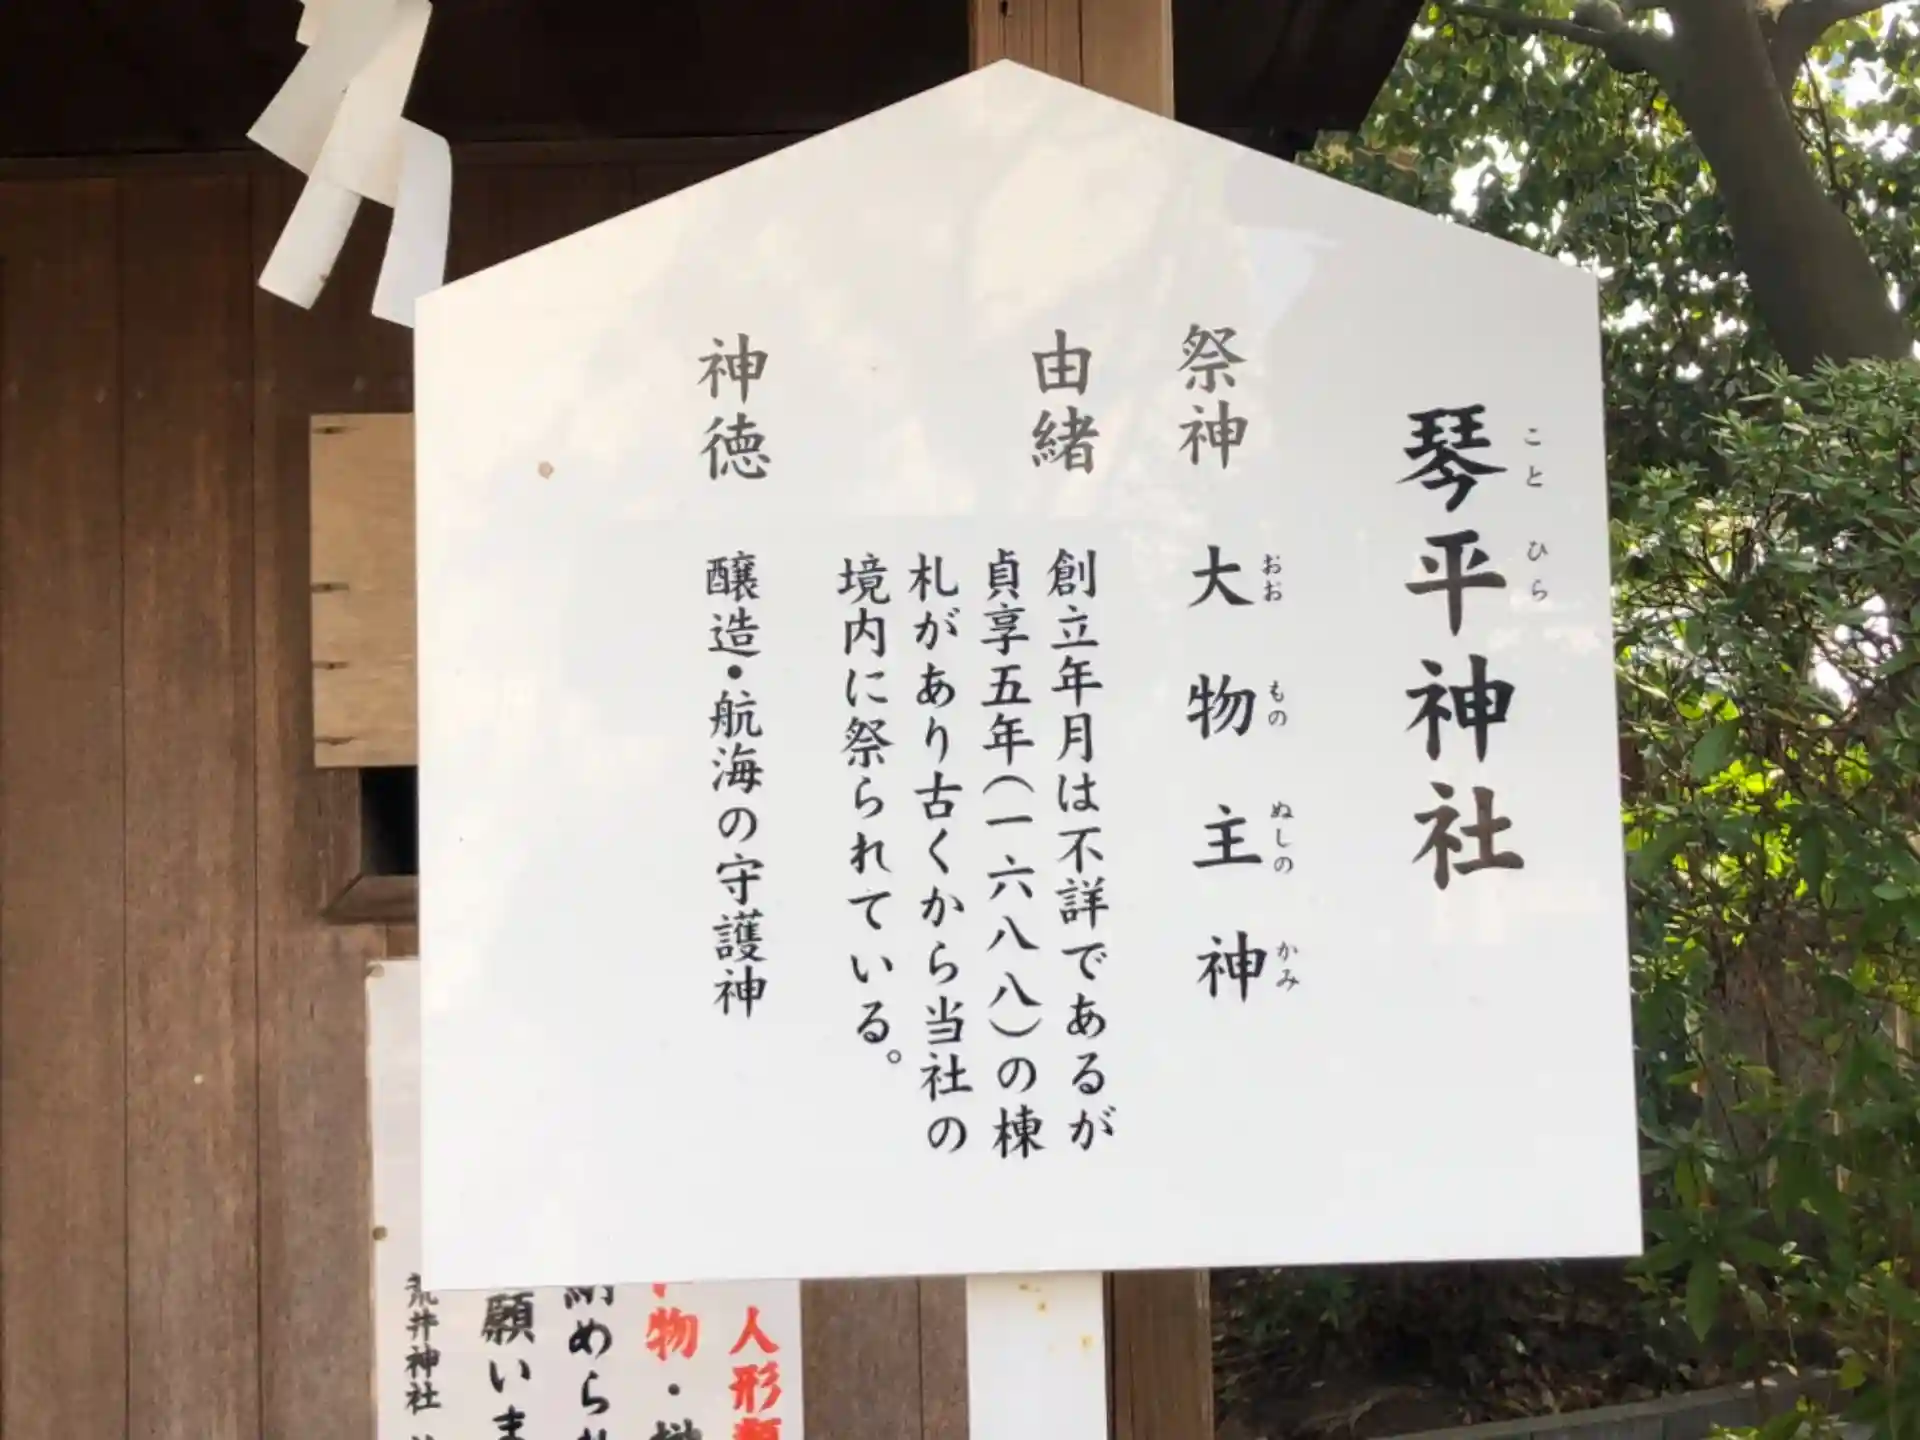 琴平神社
ことひら
祭神
大物主神
おおものぬしのかみ
由緒
創立年月は不詳であるが
貞享五年(一六八八)の棟
札があり古くから当社の
境内に祭られている。
神徳
醸造・航海の守護神
人形
物・
納められ
願いま
荒井神社